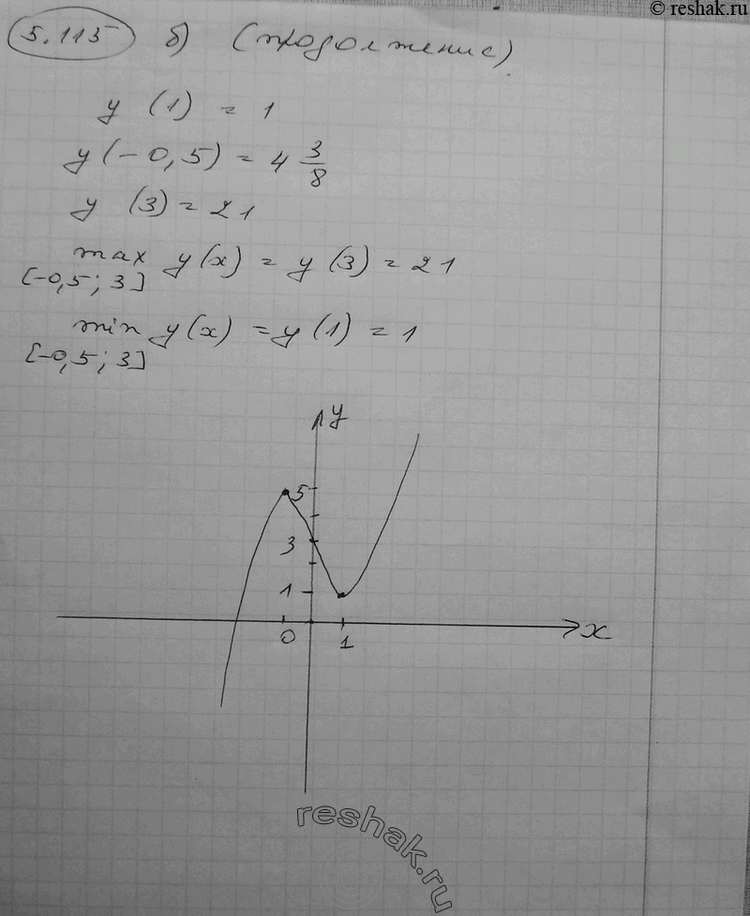 © reshak.ru
5.115 б) (продолжение)
y (1) = 1
y(-0,5) = 4 3/8
y (3) = 21
max y(x) = y (3) = 21
[-0,5; 3]
min y(x) = y (1) = 1
[-0,5; 3]
y
5
3
1
0 1 x
reshak.ru